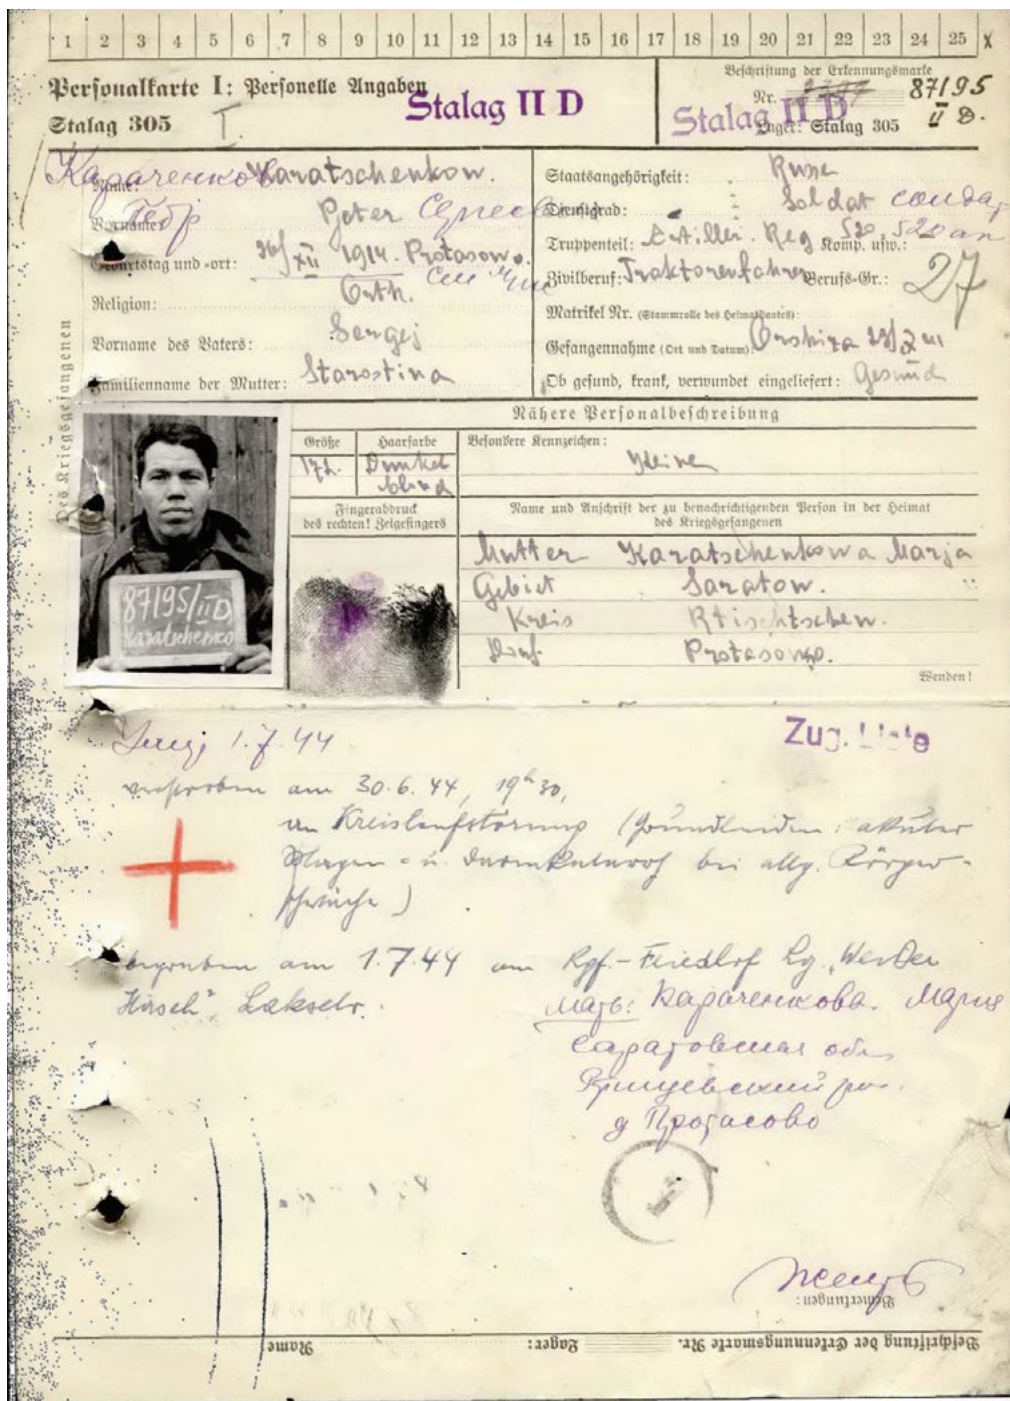 1 2 3 4 5 6 7 8 9 10 11 12 13 14 15 16 17 18 19 20 21 22 23 24 25 X
Personalkarte I: Personelle Angaben
Stalag 305 I.
Stalag II D
Beschriftung der Erkennungsmarke
Nr. 87195
Lager: Stalag 305 II D.
Stalag II D
Караченков
Name: Karatschenkow.
Vorname: Петр Peter
Geburtstag und -ort: 26/XII 1914. Protasowo.
Religion: Orth.
Vorname des Vaters: Sergej
Familienname der Mutter: Starostina
Staatsangehörigkeit: Russe
Dienstgrad: Soldat солдат
Truppenteil: Artiller. Reg 520 Komp. usw.: 520 ап
Zivilberuf: Traktorenfahrer Berufs-Gr.: 27
Matrikel Nr. (Stammrolle des Heimatstaates):
Gefangennahme (Ort und Datum):
Ob gesund, krank, verwundet eingeliefert: Gesund
Des Kriegsgefangenen
Nähere Personalbeschreibung
Größe
172.
Haarfarbe
Dunkel
blond
Besondere Kennzeichen:
Keine
Fingerabdruck
des rechten! Zeigefingers
Name und Anschrift der zu benachrichtigenden Person in der Heimat
des Kriegsgefangenen
Mutter Karatschenkowa Marja
Gebiet Saratow.
Kreis Rtischtschew.
Dorf. Protasowo.
Wenden!
87195/II D
Karatschenko
1.7.44
Zug. Liste
verstorben am 30.6.44, 19h30,
an Kreislaufstörung (Grundleiden: akuter
Magen- u. Darmkatarrh bei allg. Körper-
schwäche)
begraben am 1.7.44 am Kgf.-Friedhof Lg. "Werder
Hirsch" Lakselv.
Мать: Караченкова. Мария
Саратовская обл
Ртищевский р-н.
д Протасово
Bemerkungen:
Name
Lager:
Beschriftung der Erkennungsmarke Nr.